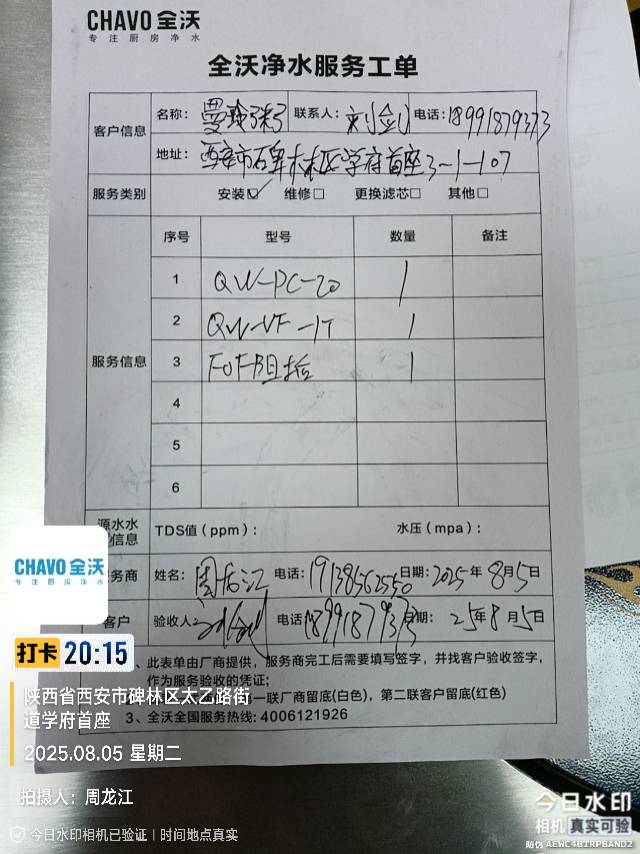 CHAVO 全沃
专注厨房净水
全沃净水服务工单
客户信息 名称: 曼玲粥 联系人: 刘剑 电话: 18991879373
地址: 西安市碑林区学府首座3-1-107
服务类别 安装☑ 维修□ 更换滤芯□ 其他□
服务信息 序号 型号 数量 备注
1 QW-PC-20 1
2 QW-VF-1T 1
3 FOF阻垢 1
4
5
6
源水水 信息 TDS值(ppm): 水压(mpa):
务商 姓名: 周龙江 电话: 19138562550 日期: 2025年8月5日
客户 验收人: 刘剑 电话 18991879373 期: 25年8月5日
、此表单由厂商提供，服务商完工后需要填写签字，并找客户验收签字，
作为服务验收的凭证;
一联厂商留底(白色)，第二联客户留底(红色)
3、全沃全国服务热线: 4006121926
CHAVO 全沃
专注厨房净水
打卡 20:15
陕西省西安市碑林区太乙路街
道学府首座
2025.08.05 星期二
拍摄人: 周龙江
今日水印相机已验证 | 时间地点真实
今日水印
相机 真实可验
防伪 AEWC4BTRPBAND2